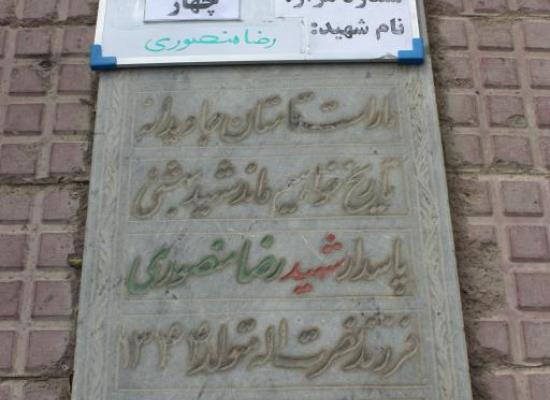 شماره مزار: چهار
نام شهید: رضا منصوری
ما راست تا ستان جاویدانه
تاریخ خواهیم ما ز شهید مبتنی
پاسدار شهید رضا منصوری
فرزند نصرت اله متولد ۱۳۴۴